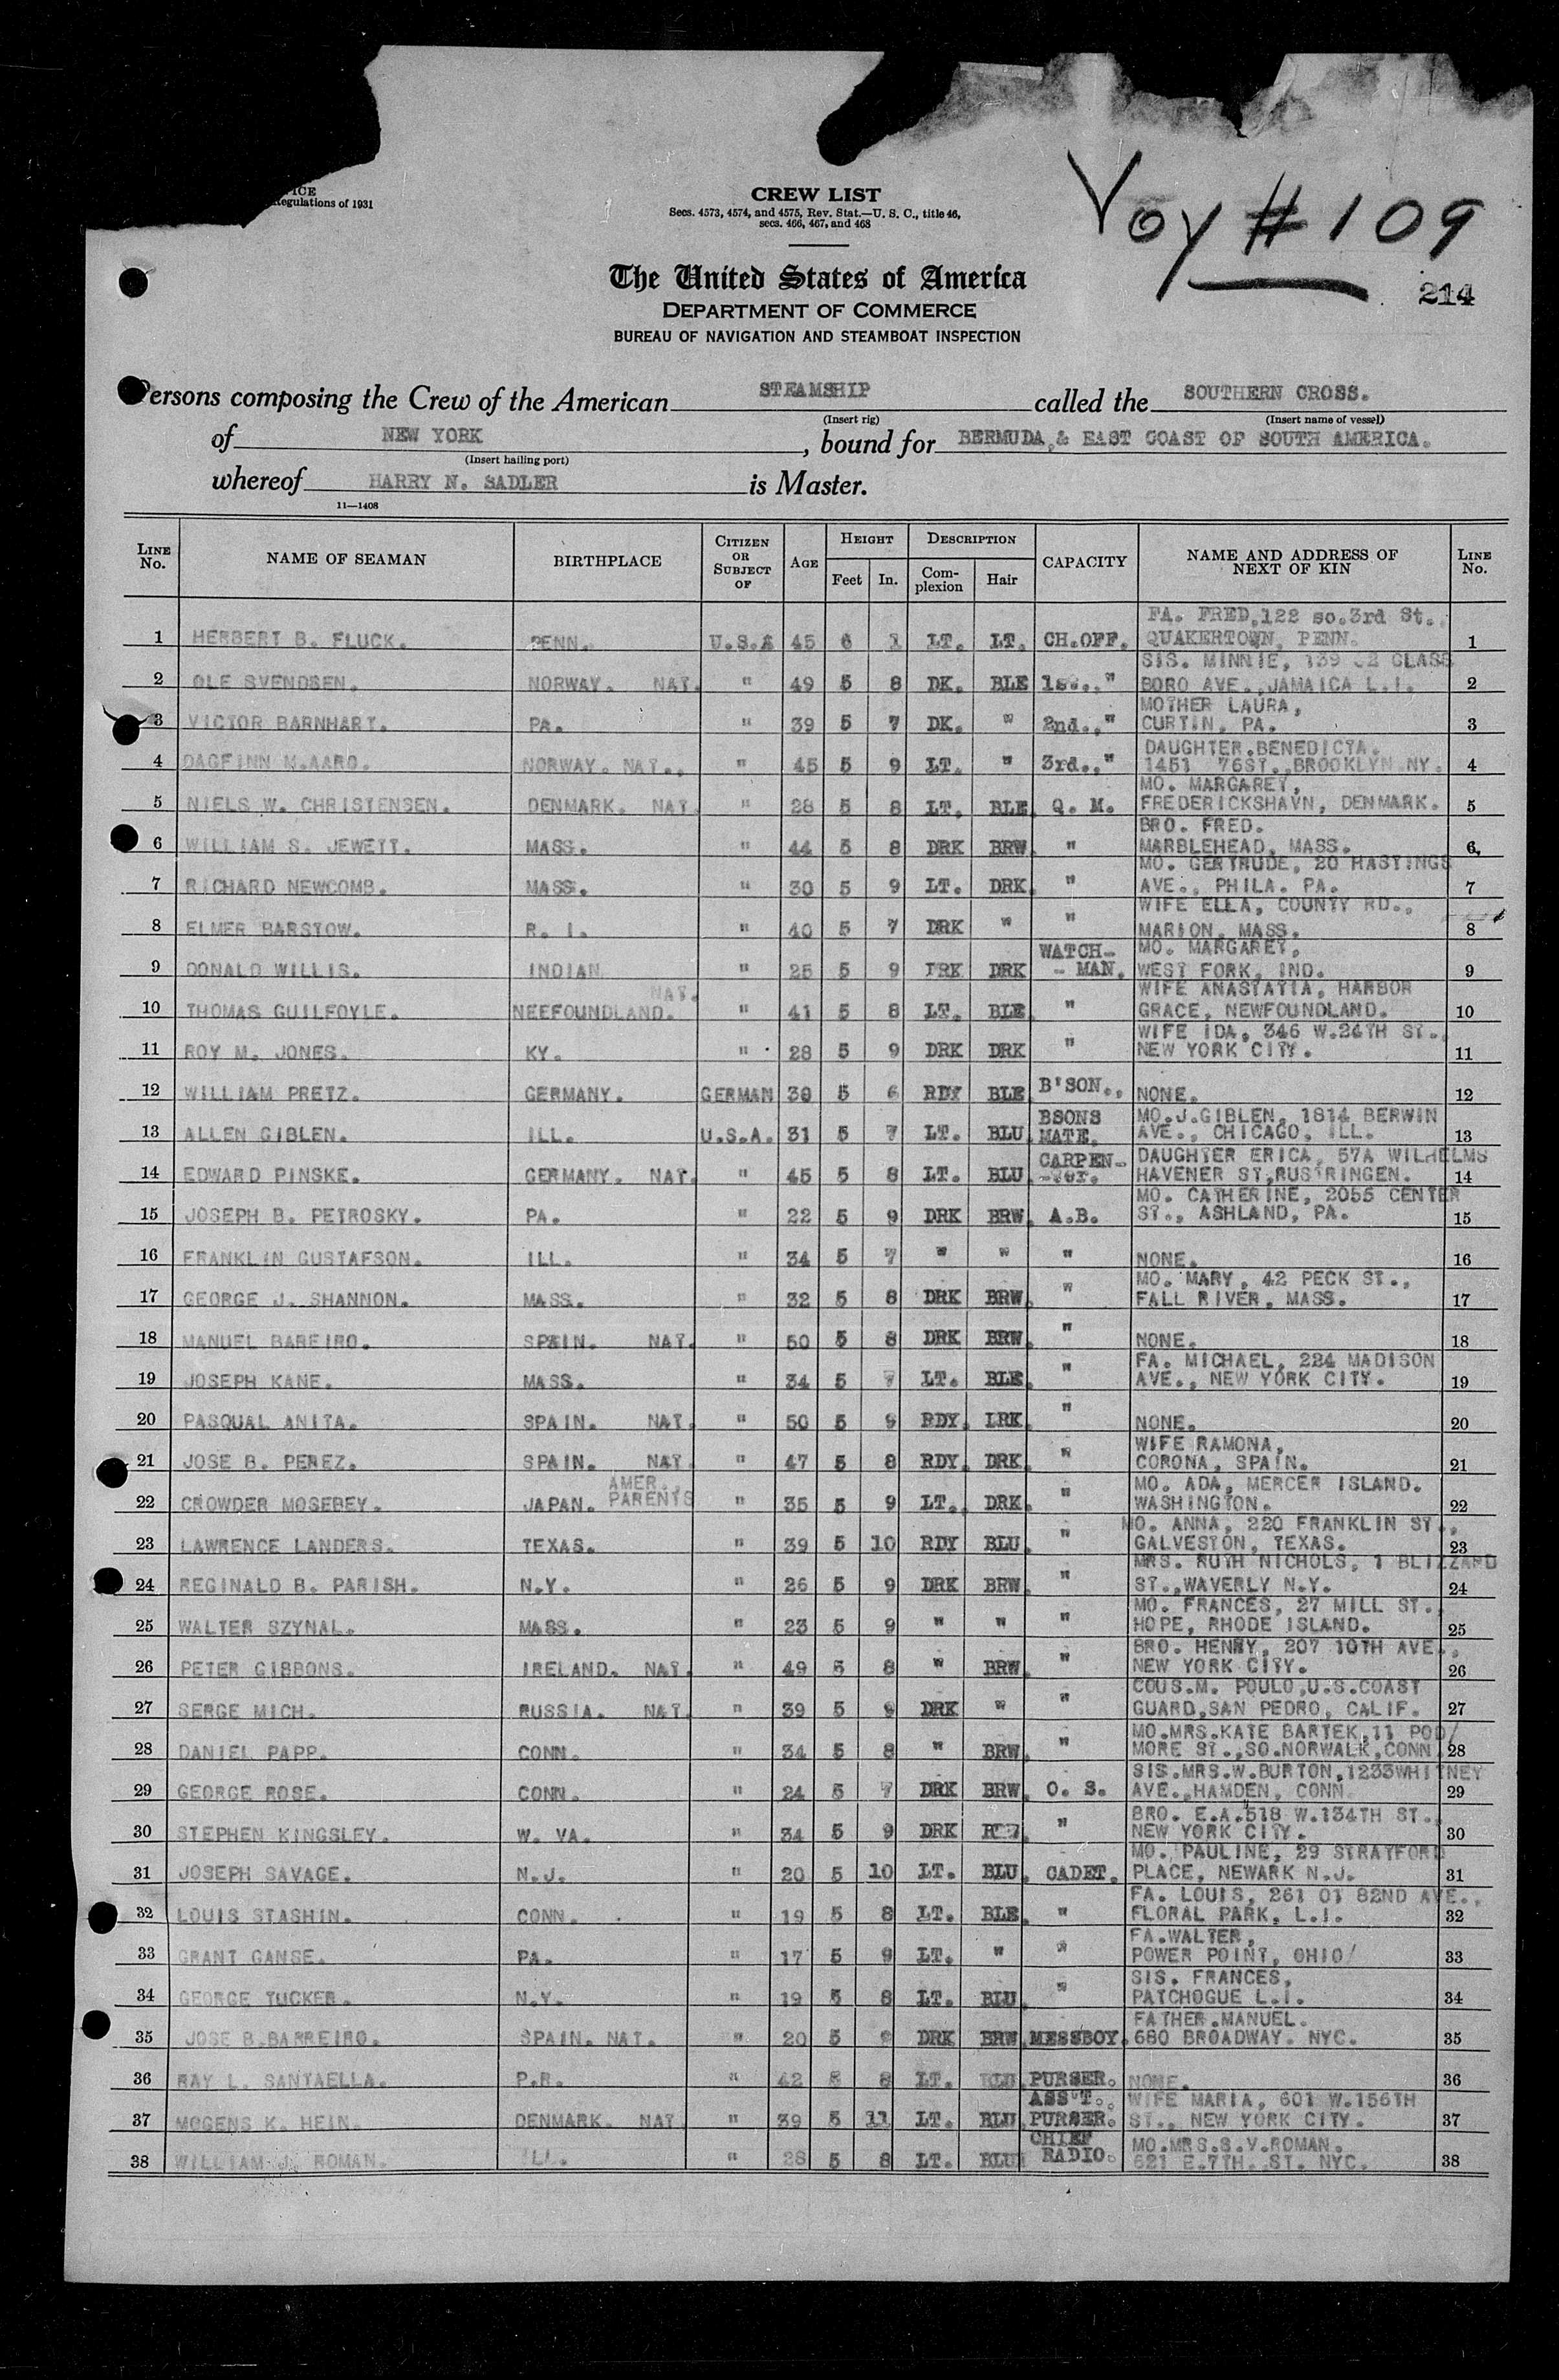 ICE
Regulations of 1931
CREW LIST
Secs. 4573, 4574, and 4575, Rev. Stat.—U. S. C., title 46,
secs. 466, 467, and 468
Voy # 109
214
The United States of America
DEPARTMENT OF COMMERCE
BUREAU OF NAVIGATION AND STEAMBOAT INSPECTION
Persons composing the Crew of the American STEAMSHIP called the SOUTHERN CROSS.
(Insert rig) (Insert name of vessel)
of NEW YORK, bound for BERMUDA,& EAST COAST OF SOUTH AMERICA.
(Insert hailing port)
whereof HARRY N. SADLER is Master.
11—1408
LINE No. NAME OF SEAMAN BIRTHPLACE CITIZEN OR SUBJECT OF AGE HEIGHT Feet In. DESCRIPTION Complexion Hair CAPACITY NAME AND ADDRESS OF NEXT OF KIN LINE No.
1 HERBERT B. FLUCK. PENN. U.S.A 45 6 1 LT. LT. CH.OFF. FA. FRED,122 so.3rd St. QUAKERTOWN, PENN. 1
2 OLE SVENDSEN. NORWAY. NAT. " 49 5 8 DK. BLE " SIS. MINNIE, BORO AVE.,JAMAICA L.I. 2
3 VICTOR BARNHART. PA. " 39 5 7 DK. " 2nd.," MOTHER LAURA, CURTIN, PA. 3
4 DAGFINN M.AARO. NORWAY. NAT., " 45 5 9 LT. " 3rd.," DAUGHTER.BENEDICTA. 1451 76ST.,BROOKLYN NY. 4
5 NIELS W. CHRISTENSEN. DENMARK. NAT. " 28 5 8 LT. BLE Q. M. MO. MARGARET, FREDERICKSHAVN, DENMARK. 5
6 WILLIAM S. JEWETT. MASS. " 44 5 8 DRK BRW. " BRO. FRED. MARBLEHEAD, MASS. 6
7 RICHARD NEWCOMB. MASS. " 30 5 9 LT. DRK. " MO. GERTRUDE, 20 HASTINGS AVE., PHILA. PA. 7
8 ELMER BARSTOW. R. I. " 40 5 7 DRK " " WIFE ELLA, COUNTY RD., MARION, MASS. 8
9 DONALD WILLIS. INDIAN " 25 5 9 DRK DRK WATCH-- MAN. MO. MARGARET, WEST FORK, IND. 9
10 THOMAS GUILFOYLE. NEEFOUNDLAND. NAT. " 41 5 8 LT. BLE. " WIFE ANASTATIA, HARBOR GRACE, NEWFOUNDLAND. 10
11 ROY M. JONES. KY. " 28 5 9 DRK DRK " WIFE IDA, 346 W.24TH ST., NEW YORK CITY. 11
12 WILLIAM PRETZ. GERMANY. GERMAN 30 5 6 RDY BLE B'SON., NONE. 12
13 ALLEN GIBLEN. ILL. U.S.A. 31 5 7 LT. BLU BSONS MATE. MO.J.GIBLEN, 1814 BERWIN AVE., CHICAGO, ILL. 13
14 EDWARD PINSKE. GERMANY. NAT. " 45 5 8 LT. BLU CARPEN--ter. DAUGHTER ERICA, 57A WILHELMS HAVENER ST,RUSTRINGEN. 14
15 JOSEPH B. PETROSKY. PA. " 22 5 9 DRK BRW. A.B. MO. CATHERINE, 2055 CENTER ST., ASHLAND, PA. 15
16 FRANKLIN GUSTAFSON. ILL. " 34 5 7 " " " NONE. 16
17 GEORGE J. SHANNON. MASS. " 32 5 8 DRK BRW. " MO. MARY, 42 PECK ST., FALL RIVER, MASS. 17
18 MANUEL BAREIRO. SPAIN. NAT. " 50 5 8 DRK BRW. " NONE. 18
19 JOSEPH KANE. MASS. " 34 5 7 LT. BLE. " FA. MICHAEL, 224 MADISON AVE., NEW YORK CITY. 19
20 PASQUAL ANITA. SPAIN. NAT. " 50 5 9 RDY. DRK. " NONE. 20
21 JOSE B. PEREZ. SPAIN. NAT. " 47 5 8 RDY. DRK. " WIFE RAMONA, CORONA, SPAIN. 21
22 CROWDER MOSEBEY. JAPAN. AMER. PARENTS " 35 5 9 LT. DRK. " MO. ADA, MERCER ISLAND. WASHINGTON. 22
23 LAWRENCE LANDERS. TEXAS. " 39 5 10 RDY BLU. " MO. ANNA, 220 FRANKLIN ST., GALVESTON, TEXAS. 23
24 REGINALD B. PARISH. N.Y. " 26 5 9 DRK BRW. " MRS. RUTH NICHOLS, 1 BLIZZARD ST.,WAVERLY N.Y. 24
25 WALTER SZYNAL. MASS. " 23 5 9 " " " MO. FRANCES, 27 MILL ST., HOPE, RHODE ISLAND. 25
26 PETER GIBBONS. IRELAND. NAT. " 49 5 8 " BRW. " BRO. HENRY, 207 10TH AVE., NEW YORK CITY. 26
27 SERGE MICH. RUSSIA. NAT. " 39 5 9 DRK " " COUS.M. POULO,U.S.COAST GUARD,SAN PEDRO, CALIF. 27
28 DANIEL PAPP. CONN. " 34 5 8 " BRW. " MO.MRS.KATE BARTEK,11 POD/ MORE ST.,SO.NORWALK,CONN. 28
29 GEORGE ROSE. CONN. " 24 5 7 DRK BRW. O. S. SIS.MRS.W.BURTON,1233WHITNEY AVE.,HAMDEN, CONN. 29
30 STEPHEN KINGSLEY. W. VA. " 34 5 9 DRK " BRO. E.A.518 W.134TH ST., NEW YORK CITY. 30
31 JOSEPH SAVAGE. N.J. " 20 5 10 LT. BLU. CADET. MO. PAULINE, 29 STRATFORD PLACE, NEWARK N.J. 31
32 LOUIS STASHIN. CONN. " 19 5 8 LT. BLE. " FA. LOUIS, 261 01 82ND AVE., FLORAL PARK, L.I. 32
33 GRANT GANSE. PA. " 17 5 9 LT. " " FA.WALTER, POWER POINT, OHIO/ 33
34 GEORGE TUCKER. N.Y. " 19 5 8 LT. BLU. " SIS. FRANCES, PATCHOGUE L.I. 34
35 JOSE B.BARREIRO. SPAIN. NAT. " 20 5 DRK BRW. MESSBOY. FATHER.MANUEL. 680 BROADWAY. NYC. 35
36 RAY L. SANTAELLA. P.R. " 42 8 LT. PURSER. NONE. 36
37 MOGENS K. HEIN. DENMARK. NAT. " 39 5 11 LT. BLU. ASS'T. PURSER. WIFE MARIA, 601 W.156TH ST., NEW YORK CITY. 37
38 WILLIAM J. ROMAN. ILL. " 28 5 8 LT. BLU CHIEF RADIO. MO.MRS.S.V.ROMAN. 621 E.7TH. ST. NYC. 38